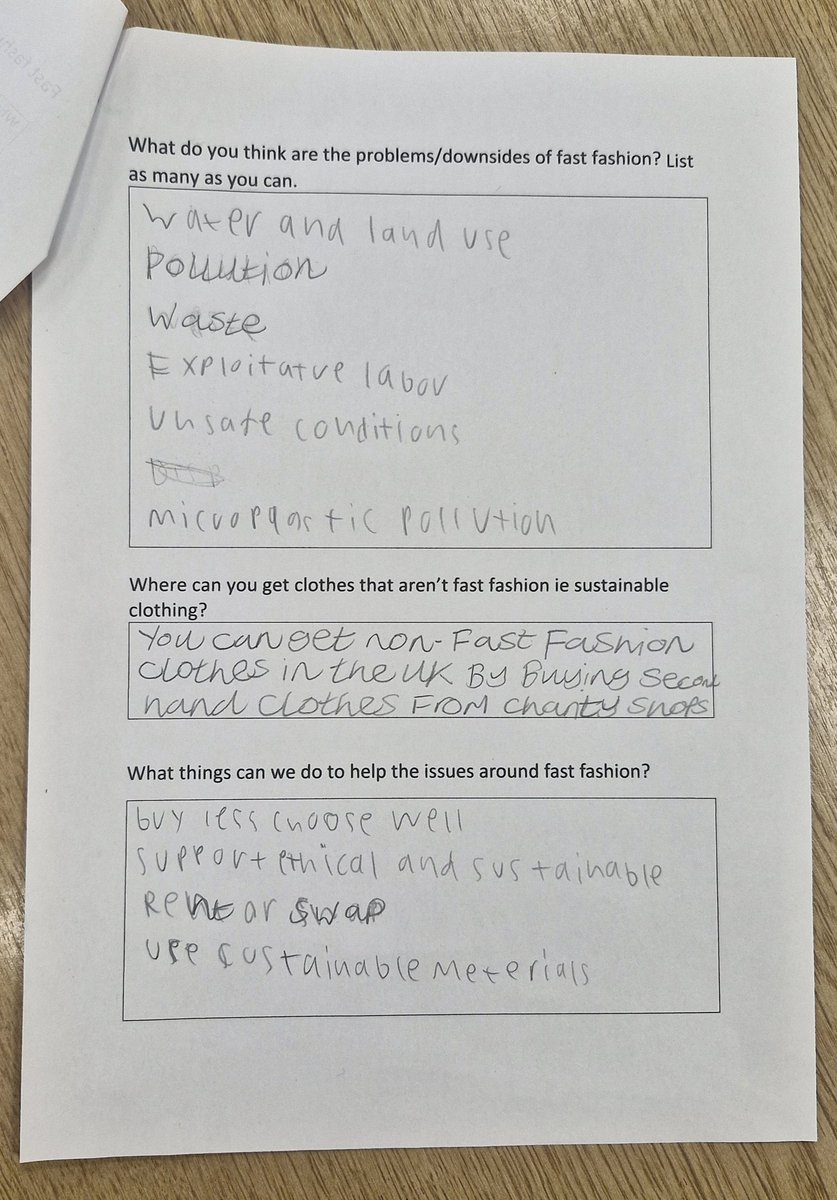 What do you think are the problems/downsides of fast fashion? List
as many as you can.
Water and land use
Pollution
Waste
Exploitatve labor
Unsafe conditions
Microplastic pollution
Where can you get clothes that aren't fast fashion ie sustainable
clothing?
You can get non-Fast Fashion
clothes in the UK By Buying second
hand clothes From charity shops
What things can we do to help the issues around fast fashion?
buy less choose well
support ethical and sustainable
Rent or swap
use sustainable meterials